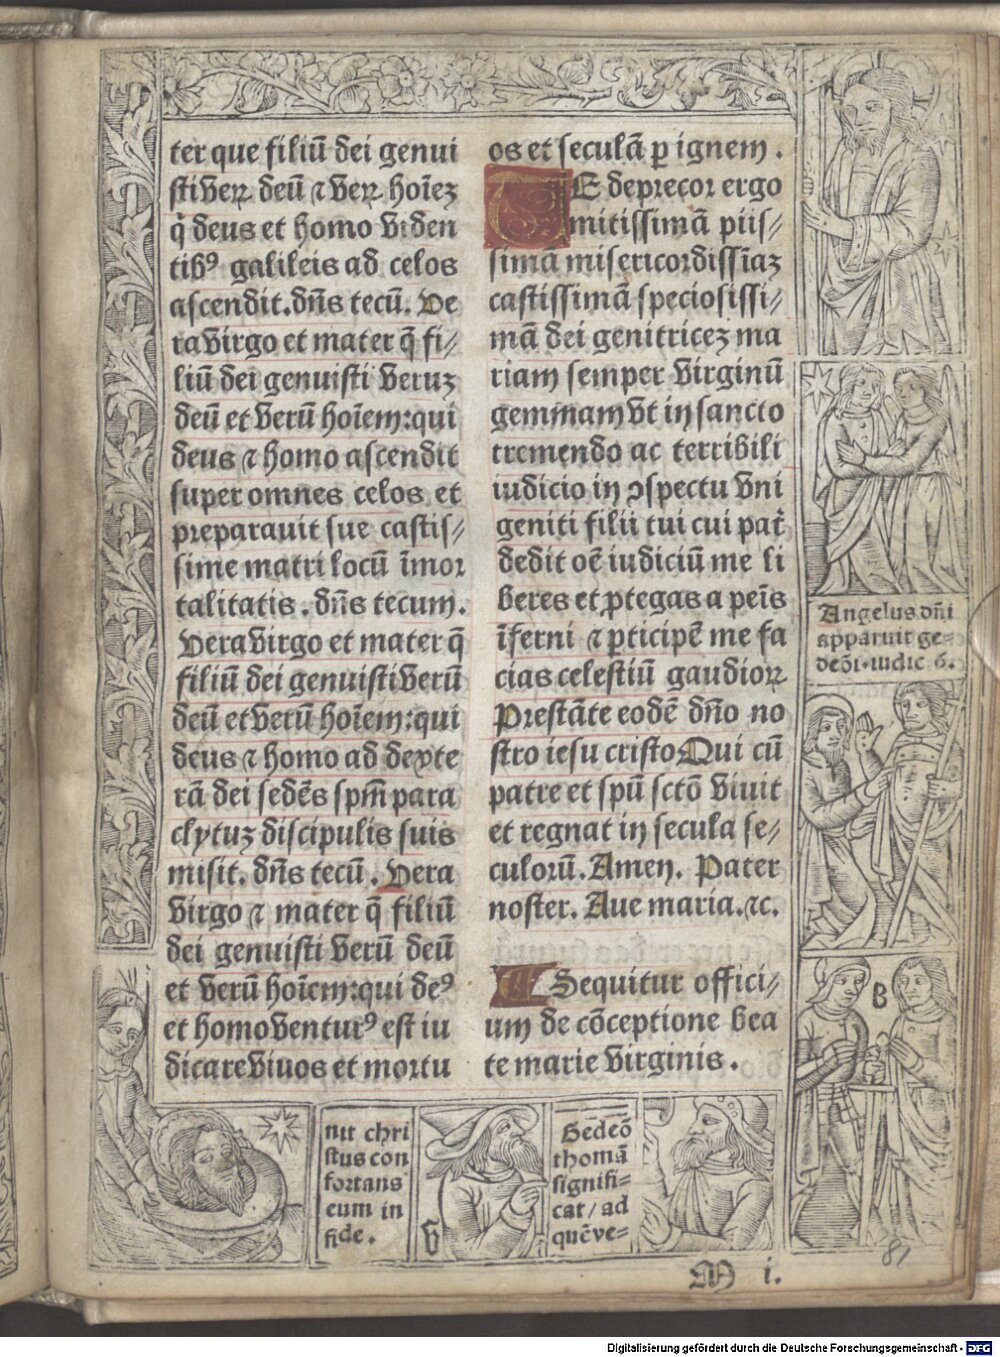 ter que filiū dei genui
sti veꝝ deū ⁊ veꝝ hoīeꝫ
q̇ deus et homo viden
tibꝰ galileis ad celos
ascendit. dn̄s tecū. Ve
ra virgo et mater q̄ fi⸗
liū dei genuisti veruꝫ
deū et verū hoīem: qui
deus ⁊ homo ascendit
super omnes celos et
preparauit sue castis⸗
sime matri locū īmor
talitatis. dn̄s tecum.
Vera virgo et mater q̄
filiū dei genuisti verū
deū et verū hoīem: qui
deus ⁊ homo ad dexte
rā dei sedēs spm̄ para
clytuꝫ discipulis suis
misit. dn̄s tecū. Vera
virgo ⁊ mater q̄ filiū
dei genuisti verū deū
et verū hoīem: qui deꝰ
et homo venturꝰ est iu
dicare viuos et mortu
os et seculā ꝑ ignem.
TE deprecor ergo
mitissimā piis⸗
simā misericordissīaꝫ
castissimā speciosissi⸗
mā dei genitriceꝫ ma
riam semper virginū
gemmam vt in sancto
tremendo ac terribili
iudicio in ɔspectu vni
geniti filii tui cui pat̄
dedit oē iudiciū me li
beres et ꝓtegas a peīs
īferni ⁊ ꝑticipē me fa
cias celestiū gaudioꝝ
Prestāte eodē dn̄o no
stro iesu cristo Qui cū
patre et spū sctō viuit
et regnat in secula se⸗
culorū. Amen. Pater
noster. Aue maria. ⁊c.
¶ Sequitur offici⸗
um de cōceptione bea
te marie virginis.
Angelus dn̄i
apparuit ge⸗
deōi. iudic 6.
B
nit chri
stus con
fortans
eum in
fide.
Gedeō
thomā
signifi⸗
cat / ad
quē ve⸗
81
M i.
Digitalisierung gefördert durch die Deutsche Forschungsgemeinschaft - DFG